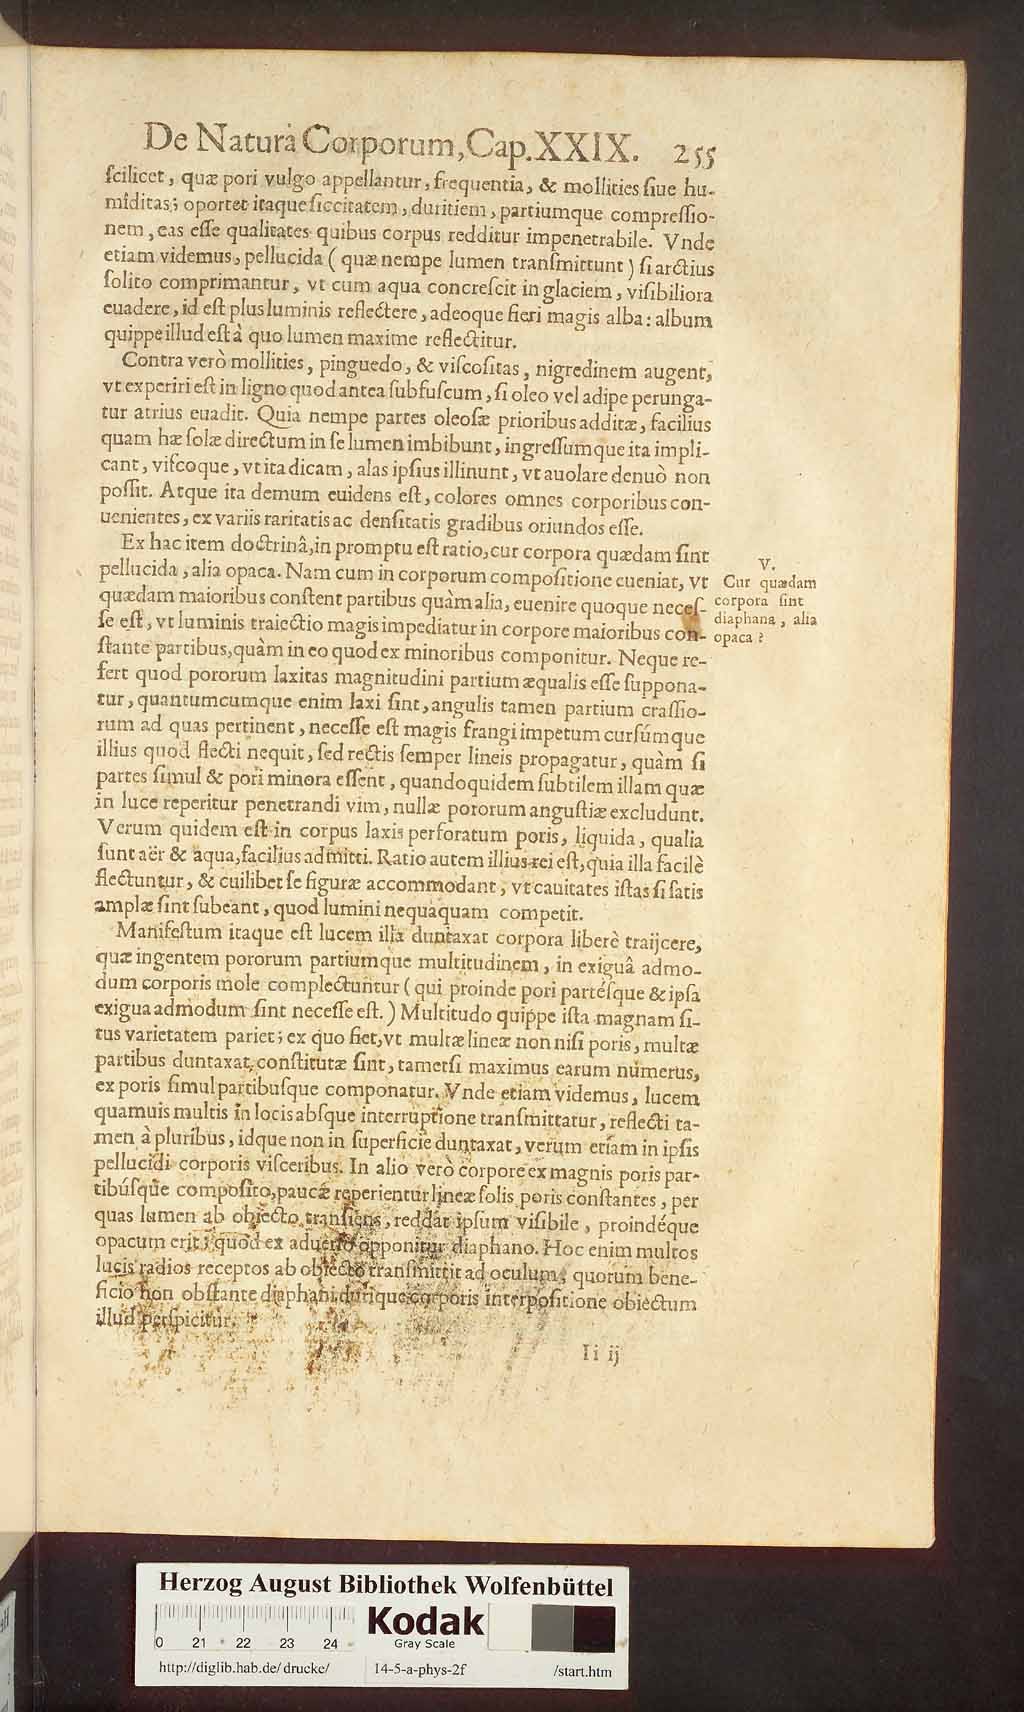 De Naturâ Corporum, Cap. XXIX. 255
ſcilicet, quæ pori vulgo appellantur, frequentia, & mollities ſiue hu-
miditas; oportet itaque ſiccitatem, duritiem, partiumque compreſſio-
nem, eas eſſe qualitates quibus corpus redditur impenetrabile. Vnde
etiam videmus, pellucida (quæ nempe lumen tranſmittunt) ſi arctius
ſolito comprimantur, vt cum aqua concreſcit in glaciem, viſibiliora
euadere, id eſt plus luminis reflectere, adeoque fieri magis alba: album
quippe illud eſt à quo lumen maxime reflectitur.
Contra verò mollities, pinguedo, & viſcoſitas, nigredinem augent,
vt experiri eſt in ligno quod antea ſubfuſcum, ſi oleo vel adipe perunga-
tur atrius euadit. Quia nempe partes oleoſæ prioribus additæ, facilius
quam hæ ſolæ directum in ſe lumen imbibunt, ingreſſumque ita impli-
cant, viſcoque, vt ita dicam, alas ipſius illinunt, vt auolare denuò non
poſſit. Atque ita demum euidens eſt, colores omnes corporibus con-
uenientes, ex variis raritatis ac denſitatis gradibus oriundos eſſe.
Ex hac item doctrinâ, in promptu eſt ratio, cur corpora quædam ſint
pellucida, alia opaca. Nam cum in corporum compoſitione eueniat, vt
quædam maioribus conſtent partibus quàm alia, euenire quoque neceſ-
ſe eſt, vt luminis traiectio magis impediatur in corpore maioribus con-
ſtante partibus, quàm in eo quod ex minoribus componitur. Neque re-
fert quod pororum laxitas magnitudini partium æqualis eſſe ſuppona-
tur, quantumcumque enim laxi ſint, angulis tamen partium craſſio-
rum ad quas pertinent, neceſſe eſt magis frangi impetum curſúmque
illius quod flecti nequit, ſed rectis ſemper lineis propagatur, quàm ſi
partes ſimul & pori minora eſſent, quandoquidem ſubtilem illam quæ
in luce reperitur penetrandi vim, nullæ pororum anguſtiæ excludunt.
Verum quidem eſt in corpus laxis perforatum poris, liquida, qualia
ſunt aër & aqua, facilius admitti. Ratio autem illius rei eſt, quia illa facilè
flectuntur, & cuilibet ſe figuræ accommodant, vt cauitates iſtas ſi ſatis
amplæ ſint ſubeant, quod lumini nequaquam competit.
Manifeſtum itaque eſt lucem illa duntaxat corpora liberè traijcere,
quæ ingentem pororum partiumque multitudinem, in exiguâ admo-
dum corporis mole complectuntur (qui proinde pori partéſque & ipſa
exigua admodum ſint neceſſe eſt.) Multitudo quippe iſta magnam ſi-
tus varietatem pariet; ex quo fiet, vt multæ lineæ non niſi poris, multæ
partibus duntaxat conſtitutæ ſint, tametſi maximus earum numerus,
ex poris ſimul partibuſque componatur. Vnde etiam videmus, lucem
quamuis multis in locis abſque interruptione tranſmittatur, reflecti ta-
men à pluribus, idque non in ſuperficie duntaxat, verum etiam in ipſis
pellucidi corporis viſceribus. In alio verò corpore ex magnis poris par-
tibúſque compoſito, paucæ reperientur lineæ ſolis poris conſtantes, per
quas lumen ab obiecto tranſiens, reddat ipſum viſibile, proindéque
opacum erit; quod ex aduerſo opponitur diaphano. Hoc enim multos
lucis radios receptos ab obiecto tranſmittit ad oculum, quorum bene-
ficio non obſtante diaphani durique corporis interpoſitione obiectum
illud perſpicitur.
Ii ij
V.
Cur quædam
corpora ſint
diaphana, alia
opaca?
Herzog August Bibliothek Wolfenbüttel
0 21 22 23 24
Kodak
Gray Scale
http://diglib.hab.de/drucke/ 14-5-a-phys-2f /start.htm